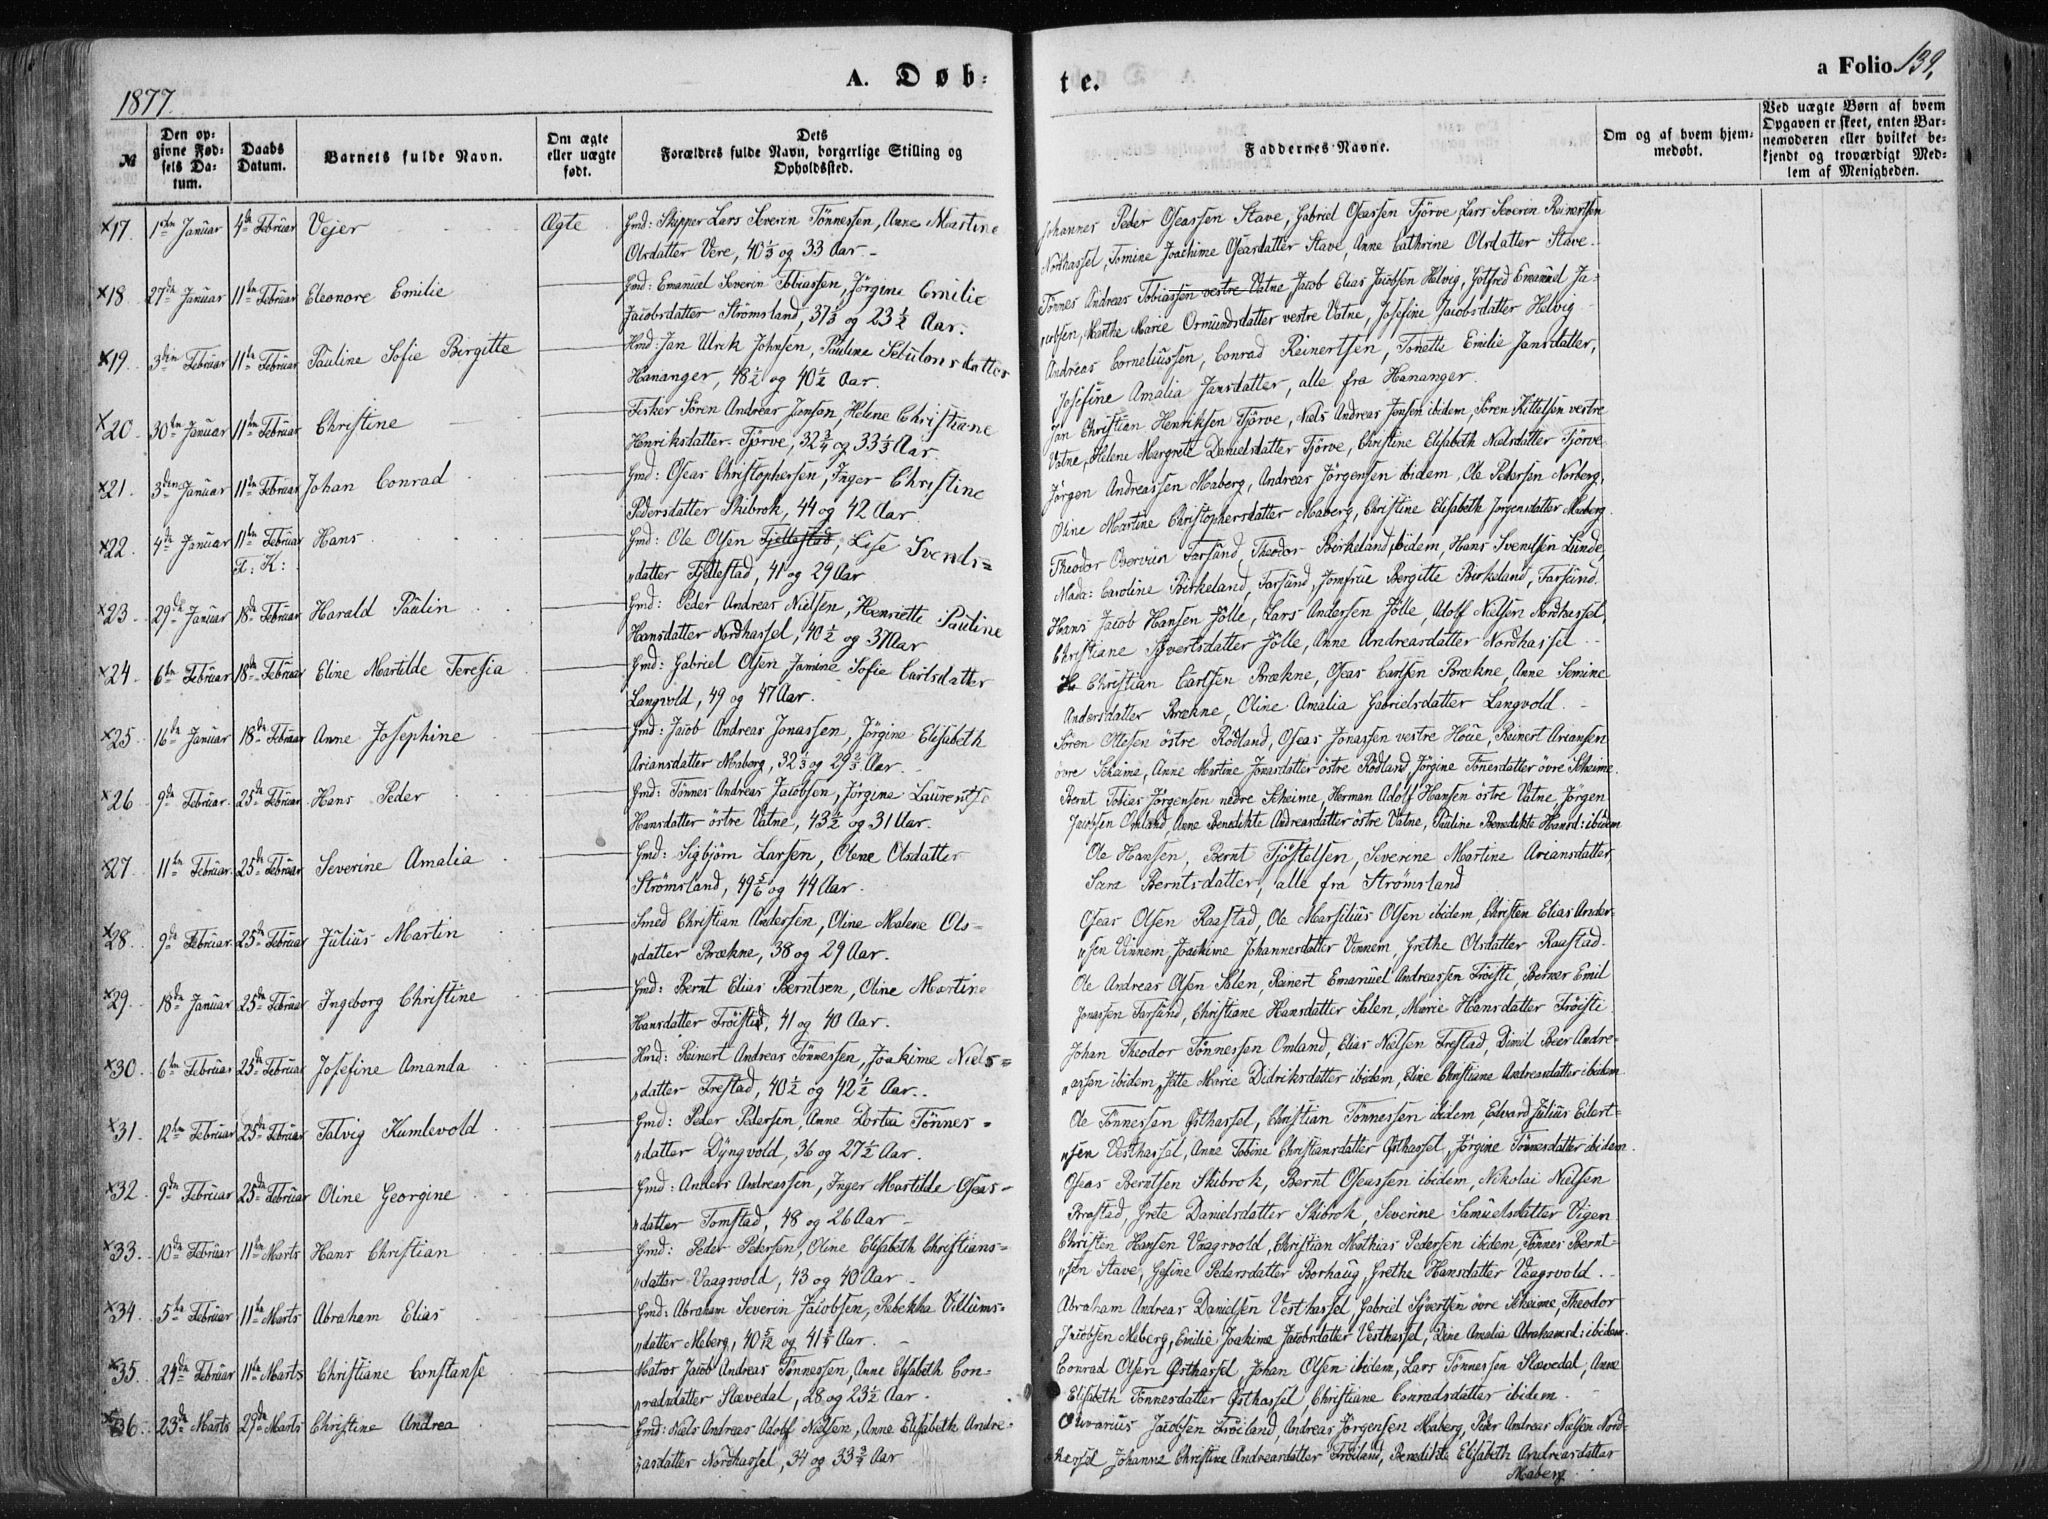 1877.
A. Døb-
te.
a Folio 139,
№
Den op-
givne Fød-
sels Da-
tum.
Daabs
Datum.
Barnets fulde Navn.
Om ægte
eller uægte
født.
Dets
Forældres fulde Navn, borgerlige Stilling og
Opholdssted.
Faddernes Navne.
Om og af hvem hjem-
medøbt.
Ved uægte Børn af hvem
Opgaven er skeet, enten Bar-
nemoderen eller hvilket be-
kjendt og troværdigt Med-
lem af Menigheden.
×17. 1ste Januar 4de Februar Vejer Ægte Gmd: Skipper Lars Severin Tönnessen, Anne Martine
Olsdatter Vere, 40⅓ og 33 Aar.
Johannes Peder Oseassen Stave, Gabriel Oseassen Tjörve, Lars Severin Reinertsen
Nordhassel, Tomine Joachime Oseasdatter Stave, Anne Cathrine Olsdatter Stave.
×18. 27de Januar 11te Februar Eleonore Emilie Gmd: Emanuel Severin Tobiassen, Jörgine Emilie
Jacobsdatter Strömsland, 37⅓ og 23½ Aar.
Tönnes Andreas Tobiassen vestre Vatne Jacob Elias Jacobsen Helvig, Gotfred Emanuel Ja-
cobsen, Marthe Marie Osmundsdatter vestre Vatne, Josefine Jacobsdatter Helvig
×19. 3die Februar 11te Februar Pauline Sofie Birgitte Hmd: Jan Ulrik Johnsen, Pauline Sebulonsdatter
Hananger, 48½ og 40½ Aar.
Andreas Corneliussen, Conrad Reinertsen, Tonette Emilie Jansdatter,
Josefine Amalia Jansdatter, alle fra Hananger.
×20. 30te Januar 11te Februar Christine Fisker Sören Andreas Jonson, Helene Christiane
Henriksdatter Tjörve, 32¾ og 33⅓ Aar.
Jan Christian Henriksen Tjörve, Niels Andreas Jensen ibidem, Sören Kittelsen vestre
Vatne, Helene Margrete Danielsdatter Tjörve, Christine Elisabeth Nielsdatter Tjörve
×21. 3die Januar 11te Februar Johan Conrad Gmd: Oseas Christophersen, Inger Christine
Pedersdatter Skibrok, 44 og 42 Aar.
Jörgen Andreassen Maberg, Andreas Jörgensen ibidem, Ole Pedersen Norberg,
Oline Martine Christophersdatter Maberg, Christine Elisabeth Jörgensdatter Maberg.
×22. 4de Januar 11te Februar Hans Gmd: Ole Olsen Fjellestad, Lise Svends-
F: K:
datter Fjellestad, 41 og 29 Aar
Theodor Overvien Farsund, Theodor Birkeland ibidem, Hans Svendsen Lunde,
Mada: Caroline Birkeland, Farsund, Jomfrue Bergitte Birkeland, Farsund.
×23. 29de Januar 18de Februar Harald Paulin Gmd: Peder Andreas Nielsen, Henriette Pauline
Hansdatter Nordhassel, 40½ og 37 Aar
Hans Jacob Hansen Jölle, Lars Andersen Jölle, Adolf Nielsen Nordhassel,
Christiane Sjvertsdatter Jölle, Anne Andreasdatter Nordhassel
×24. 6te Februar 18de Februar Eline Martilde Teresia Gmd: Gabriel Olsen Jamine Sofie Carlsdatter
Langvold, 49 og 47 Aar.
Christian Carlsen Brækne, Oseas Carlsen Brækne, Anne Semine
Andersdatter Brækne, Oline Amalia Gabrielsdatter Langvold.
×25. 16de Januar 18de Februar Anne Josephine Gmd: Jacob Andreas Jonassen, Jörgine Elisabeth
Ariansdatter Maberg, 32⅓ og 29⅔ Aar.
Sören Ottesen östre Rödland, Oseas Jonassen vestre Houe, Reinert Ariansen
övre Skeime, Anne Martine Jonasdatter östre Rödland, Jörgine Tönesdatter övre Skeime.
×26. 9de Februar 25de Februar Hans Peder Gmd: Tönnes Andreas Jacobsen, Jörgine Laurentse
Hansdatter östre Vatne, 43½ og 31 Aar.
Bernt Tobias Jörgensen nedre Skeime, Herman Adolf Hansen östre Vatne, Jörgen
Jacobsen Omland, Anne Benedikte Andreasdatter östre Vatne, Pauline Benedikte Hansd: ibidem
×27. 11te Februar 25de Februar Severine Amalia Gmd: Sigbjörn Larsen, Olene Olsdatter
Strömsland, 49⅚ og 44 Aar.
Ole Hansen, Bernt Tjöstelsen, Severine Martine Ariansdatter
Sara Berntsdatter, alle fra Strömsland
×28. 9de Februar 25de Februar Julius Martin Smed Christian Andersen, Oline Malene Ols-
datter Brækne, 38 og 29 Aar.
Oseas Olsen Raastad, Ole Marsilius Olsen ibidem, Christen Elias Ander-
sen Vinnem, Joakime Johannesdatter Vinnem, Grethe Olsdatter Raastad.
×29. 18de Januar 25de Februar Ingeborg Christine Gmd: Bernt Elias Berntsen, Oline Martine
Hansdatter Tröisti, 41 og 40 Aar.
Ole Andreas Olsen Salen, Reinert Emanuel Andreassen Tröisti, Berner Emil
Jonassen Farsund, Christiane Hansdatter Salen, Marie Hansdatter Tröisti.
×30. 6te Februar 25de Februar Josefine Amanda Hmd: Reinert Andreas Tönnessen, Joakime Niels-
datter Frestad, 40½ og 42½ Aar.
Johan Theodor Tönnessen Omland, Elias Nielsen Frestad, Beer Andre-
assen ibidem, Jette Marie Didriksdatter ibidem, Eline Christiane Andreasdatter ibidem.
×31. 12te Februar 25de Februar Talvig Kumlevold Gmd: Peder Pedersen, Anne Dortea Tönnes-
datter Dÿngvold, 36 og 27½ Aar.
Ole Tönnessen Østhassel, Christian Tönnessen ibidem, Edvard Julius Eilert-
sen Vesthassel, Anne Tobine Christiansdatter Østhassel, Jörgine Tönnesdatter ibidem.
×32. 9de Februar 25de Februar Oline Georgine Gmd: Anders Andreassen, Inger Martilde Oseas-
datter Tomstad, 48 og 26 Aar
Oseas Berntsen Skibrok, Bernt Oseassen ibidem, Nikolai Nielsen
Braastad, Grete Danielsdatter Skibrok, Severine Samuelsdatter Vigen
×33. 10de Februar 11te Marts Hans Christian Gmd: Peder Pedersen, Oline Elisabeth Christians-
datter Vaagsvold, 43 og 40 Aar
Christen Hansen Vaagsvold, Christian Mathias Pedersen ibidem, Tönnes Bernt-
sen Stave, Gesine Pedersdatter Borhaug, Grethe Hansdatter Vaagsvold.
×34. 5te Februar 11te Marts Abraham Elias Gmd: Abraham Severin Jacobsen, Rebekka Villums-
datter Meberg, 40 5/12 og 41¾ Aar.
Abraham Andreas Danielsen Vesthassel, Gabriel Sÿvertsen övre Skeime, Theodor
Jacobsen Meberg, Emilie Joakime Jacobsdatter Vesthassel, Dine Amalia Abrahamsd: ibidem.
×35. 24de Februar 11te Marts Christiane Constanse Matros Jacob Andreas Tönnessen, Anne Elisabeth Con-
radsdatter Slævedal, 28 og 23½ Aar.
Conrad Olsen Østhassel, Johan Olsen ibidem, Lars Tönnessen Slævedal, Anne
Elisabeth Tönnesdatter Østhassel, Christiane Conradsdatter ibidem.
×36. 23de Marts 29de Marts Christine Andrea Gmd: Niels Andreas Adolf Nielsen, Anne Elisabeth Andre-
asdatter Nordhassel, 34 og 33¾ Aar
Ouvarius Jacobsen Tröiland, Andreas Jörgensen Maberg, Peder Andreas Nielsen Nord-
hassel Johanne Christine Andreasdatter Tröiland, Benedikte Elisabeth Andreasdatter
Maberg.